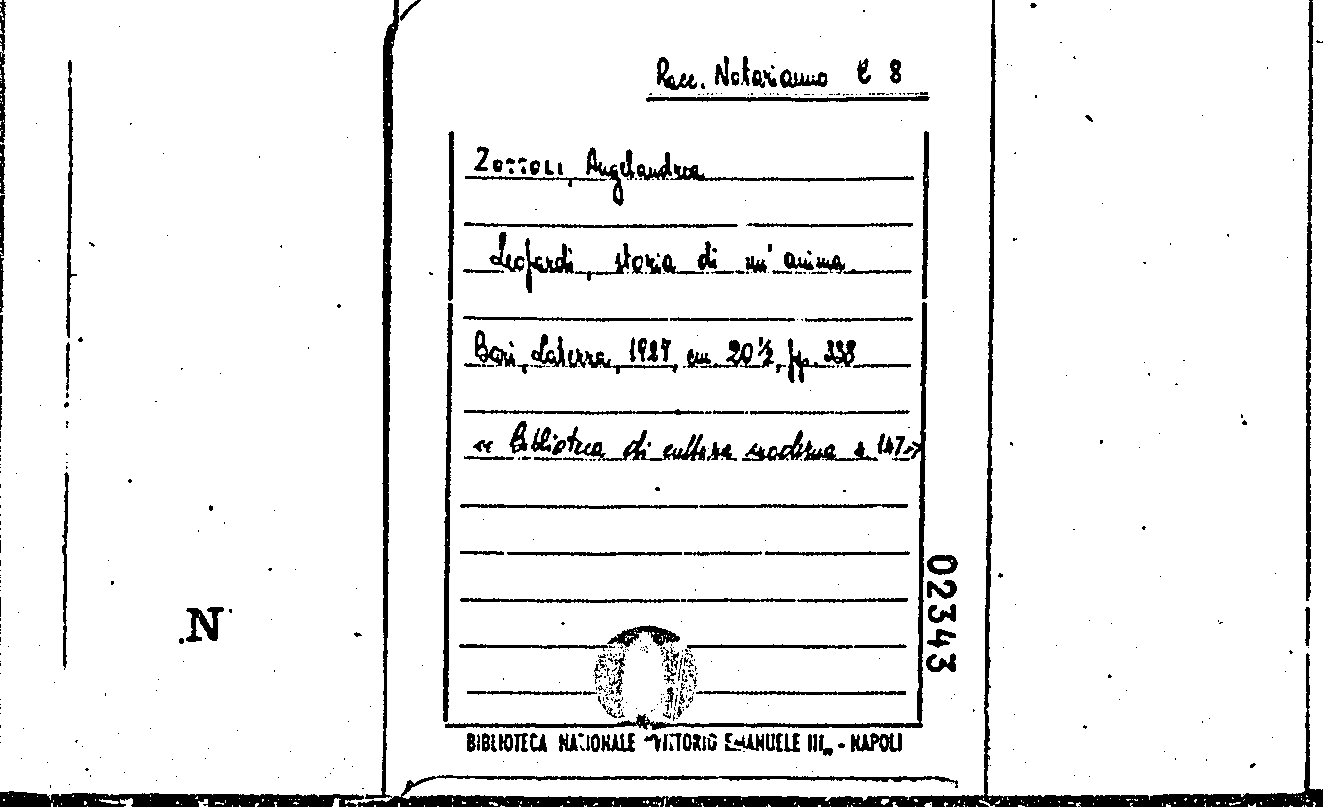 Racc. Notarianno C 8
ZOTTOLI, Angelandrea
Leopardi, storia di un'anima
Bari, Laterza, 1927, cm. 20½, pp. 338
« Biblioteca di cultura moderna n 147»
02343
N
BIBLIOTECA NAZIONALE "VITTORIO EMANUELE III„ - NAPOLI